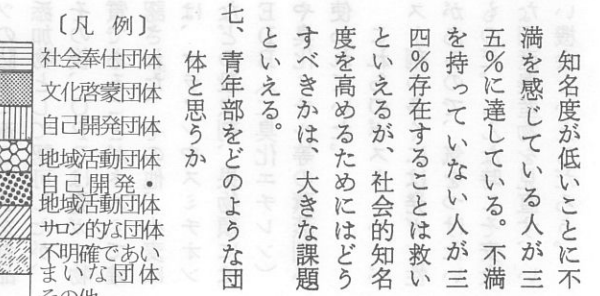 知名度が低いことに不
満を感じている人が三
五％に達している。不満
を持っていない人が三
四％存在することは救い
といえるが、社会的知名
度を高めるためにはどう
すべきかは、大きな課題
といえる。
七、青年部をどのような団
体と思うか
〔凡例〕
社会奉仕団体
文化啓蒙団体
自己開発団体
地域活動団体
自己開発・
地域活動団体
サロン的な団体
不明確であい
まいな団体
その他